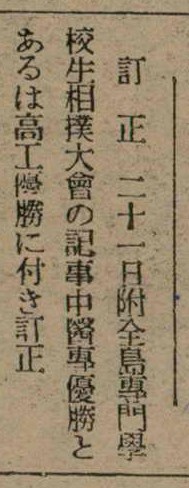 訂正 二十一日附全島專門學
校生相撲大會の記事中醫專優勝と
あるは高工優勝に付き訂正